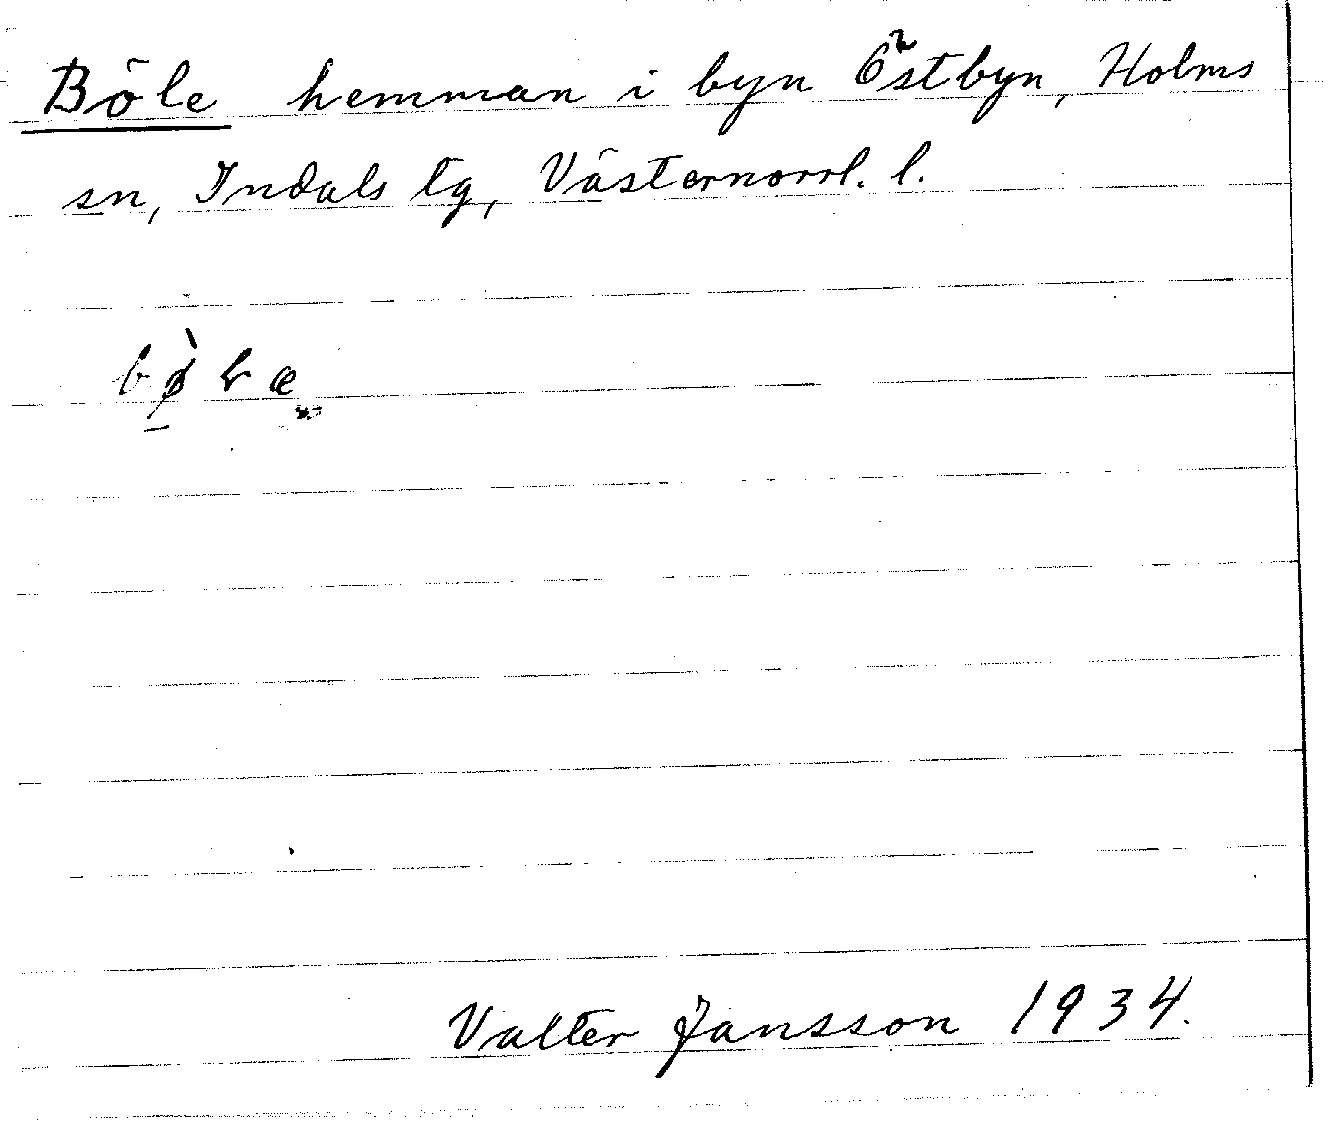 Böle hemman i byn Östbyn, Holms
sn, Indals tg, Västernorrl. l.
Valter Jansson 1934.